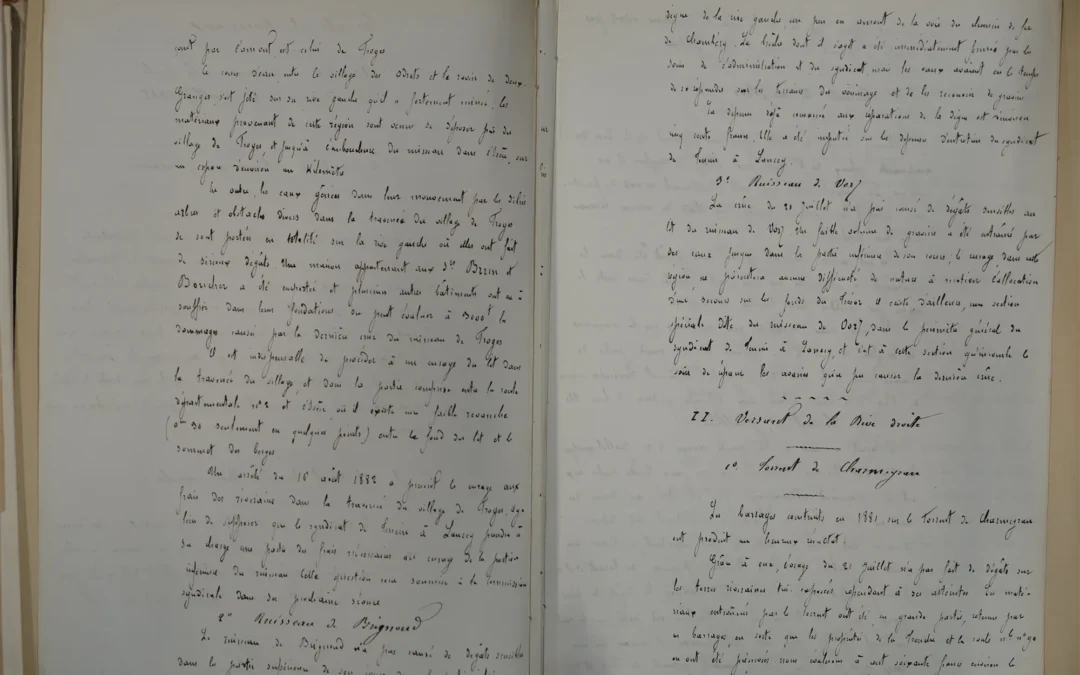 sont par l'amont est celui de Froges
Le cours d'eau entre le village des Adrets et le ravin de deux
Granges s'est jeté sur sa rive gauche qu'il a fortement minée, les
matériaux provenant de cette région sont venus se déposer près du
village de Froges, et jusqu'à l'embouchure du ruisseau dans l'Isère, sur
un espace d'environ un Kilomètre
En outre, les eaux gênées dans leur mouvement par les débris
arbres et obstacles divers dans la traversée du village de Froges
se sont portées en totalité sur la rive gauche où elles ont fait
de sérieux dégâts. Une maison appartenant aux Srs et
a été et plusieurs autres bâtiments ont eu à
souffrir dans leur fondations. On peut évaluer à 3000f le
dommage causé par la dernière crue du ruisseau de Froges
Il est indispensable de procéder à un curage du lit dans
la traversée du village, et dans la partie comprise entre la route
départementale n° 2 et l'Isère, où il existe une faible revanche
(0m 30 seulement en quelques points) entre le fond du lit et le
sommet des berges
Un arrêté du 16 août 1882 a prescrit le curage aux
frais des riverains dans la traversée du village de Froges, il y a
lieu de supposer que le syndicat de Tencin à Lancey prendra à
sa charge une partie des frais nécessaires au curage de la portion
inférieure du ruisseau. Cette question sera soumise à la commission
syndicale dans sa prochaine séance
2° Ruisseau de Brignoud
Le ruisseau de Brignoud n'a pas causé de dégâts sensibles
dans la partie supérieure de son
digue de la rive gauche un peu en amont de la voie du chemin de fer
de Chambéry. La brèche dont il s'agit a été immédiatement fermée par les
soins de l'administration et du syndicat mais les eaux avaient eu le temps
de se répandre sur les terrains du voisinage et de les recouvrir de graviers
La dépense déjà consacrée aux réparations de la digue est d'environ
cinq cents francs. Elle a été imputée sur les dépenses d'entretien du syndicat
de Tencin à Lancey.
3° Ruisseau de Vorz
La crue du 21 Juillet n'a pas causé de dégâts sensibles au
lit du ruisseau de Vorz. Un faible volume de graviers a été entraîné par
les eaux jusque dans la partie inférieure de son cours, le curage dans cette
région ne présentera aucune difficulté de nature à motiver l'allocation
d'un secours sur les fonds du Trésor. Il existe d'ailleurs, une section
spéciale dite du ruisseau de Vorz, dans le périmètre général du
syndicat de Tencin à Lancey, et c'est à cette section qu'incombe le
soin de réparer les avaries qu'a pu causer la dernière crue.
II. Versant de la Rive droite
1° Torrent de Charmeyran
Les barrages construits en 1881, sur le Torrent de Charmeyran
ont produit un heureux résultat.
Grâce à eux, l'orage du 21 Juillet n'a pas fait de dégâts sur
les terres riveraines très exposées cependant à ses atteintes. Les maté-
riaux entraînés par le torrent ont été, en grande partie, retenus par
ces barrages, en sorte que les propriétés de la Tronche et la route nle n° 90
en ont été préservées. Nous évaluons à cent soixante francs environ le